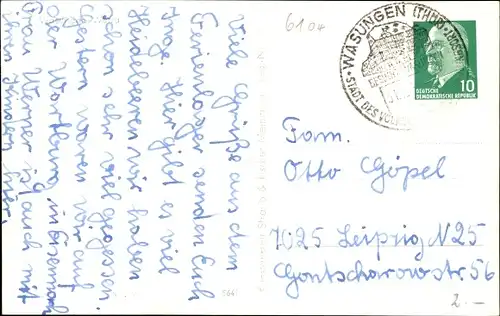 Viele Grüße aus dem
Ferienlager senden Euch
Inge. Hier gibt es viel
Heidelbeeren wir haben
schon sehr viel gegessen
Gestern waren wir auf
der Wartburg in Eisenach
Frau Werner ist auch mit
ihren Kindern hier.
6104
WASUNGEN (THÜR)
STADT DES VOLKS
DEUTSCHE
DEMOKRATISCHE REPUBLIK
10
Fam.
Otto Göpel
7025 Leipzig N25
Gontscharowstr 56
2.—